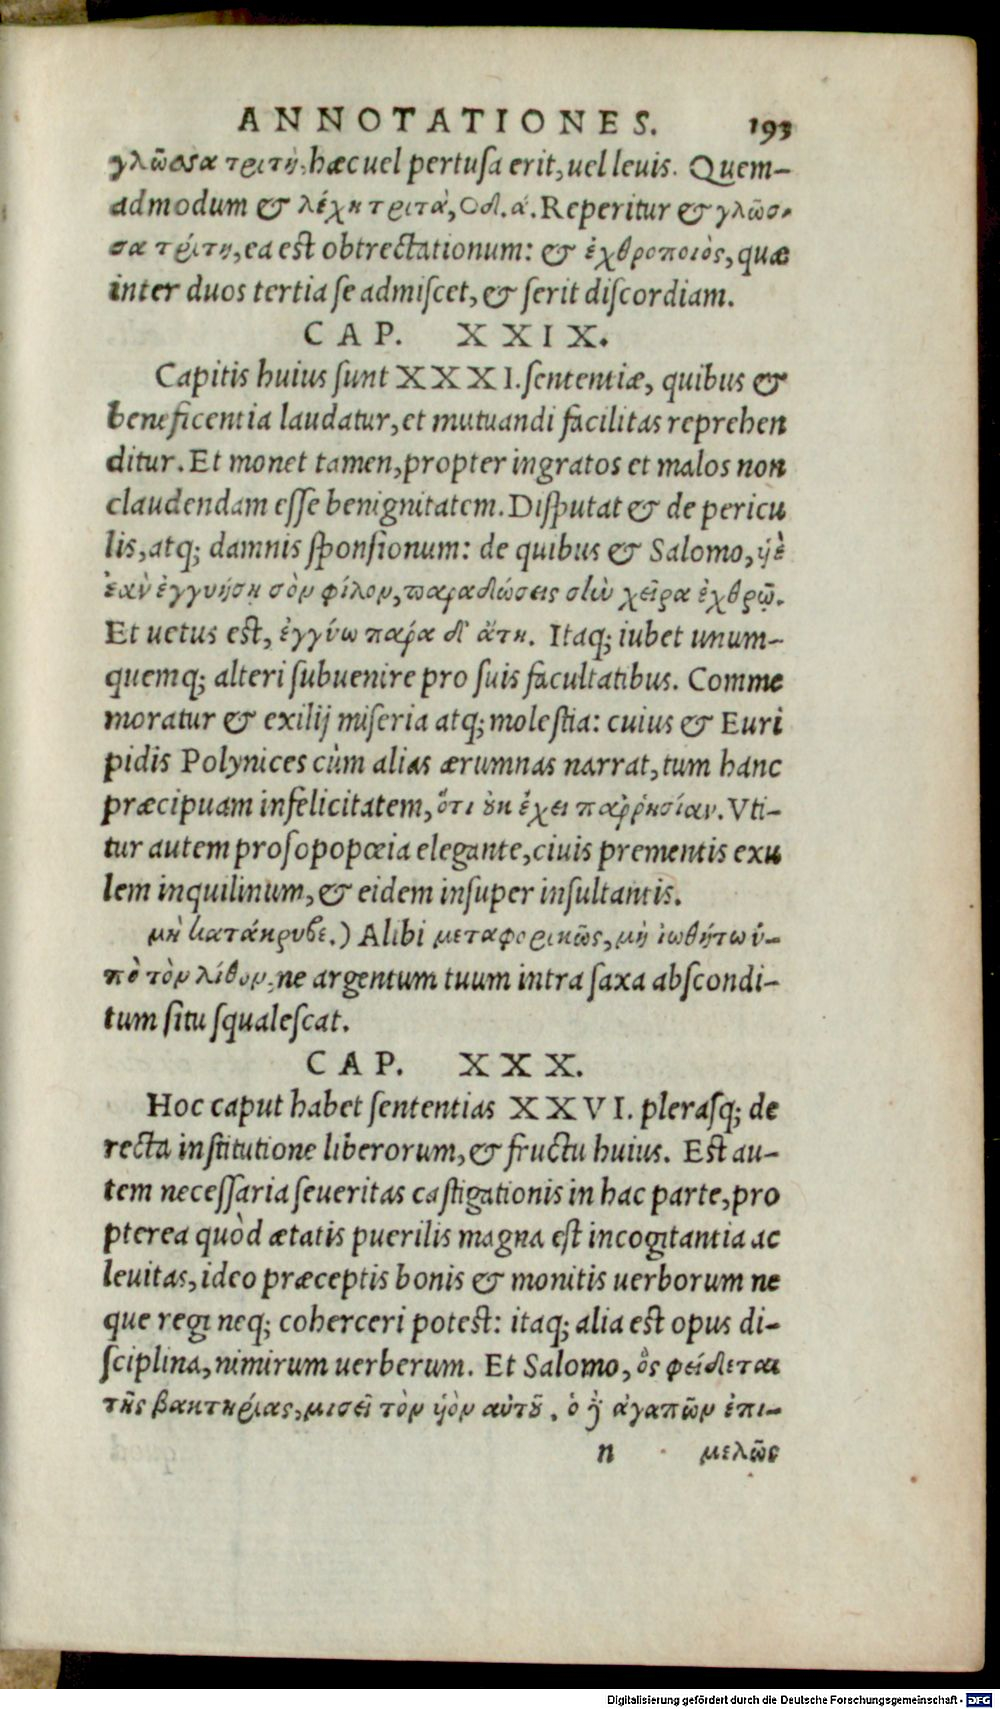 ANNOTATIONES. 193
γλῶσσα τριτὴ, hæc uel pertusa erit, uel leuis. Quem-
admodum & λέχη τριτὰ, Οδ. ά. Reperitur & γλῶσ-
σα τρίτη, ea est obtrectationum: & ἐχθροποιὸς, quæ
inter duos tertia se admiscet, & serit discordiam.
CAP. XXIX.
Capitis huius sunt XXXI. sententiæ, quibus &
beneficentia laudatur, et mutuandi facilitas reprehen
ditur. Et monet tamen, propter ingratos et malos non
claudendam esse benignitatem. Disputat & de pericu
lis, atq; damnis sponsionum: de quibus & Salomo, ὑὲ
ἐὰν ἐγγυήσῃ σὸν φίλον, παραδώσεις σὴν χεῖρα ἐχθρῷ.
Et uetus est, ἐγγύω πάρα δ' ἄτη. Itaq; iubet unum-
quemq; alteri subuenire pro suis facultatibus. Comme
moratur & exilij miseria atq; molestia: cuius & Euri
pidis Polynices cùm alias ærumnas narrat, tum hanc
præcipuam infelicitatem, ὅτι ȣκ ἔχει παῤῥησίαν. Vti-
tur autem prosopopœia elegante, ciuis prementis exu
lem inquilinum, & eidem insuper insultantis.
μὴ κατάκρυβε.) Alibi μεταφορικῶς, μὴ ἰωθήτω ὑ-
πὸ τὸν λίθον, ne argentum tuum intra saxa abscondi-
tum situ squalescat.
CAP. XXX.
Hoc caput habet sententias XXVI. plerasq; de
recta institutione liberorum, & fructu huius. Est au-
tem necessaria seueritas castigationis in hac parte, pro
pterea quòd ætatis puerilis magna est incogitantia ac
leuitas, ideo præceptis bonis & monitis uerborum ne
que regi neq; coherceri potest: itaq; alia est opus di-
sciplina, nimirum uerberum. Et Salomo, ὃς φείδεται
τῆς βακτηρίας, μισεῖ τὸν ὑὸν αὐτȣ͂. ὁ δὲ ἀγαπῶν ἐπι-
n μελῶς
Digitalisierung gefördert durch die Deutsche Forschungsgemeinschaft - DFG